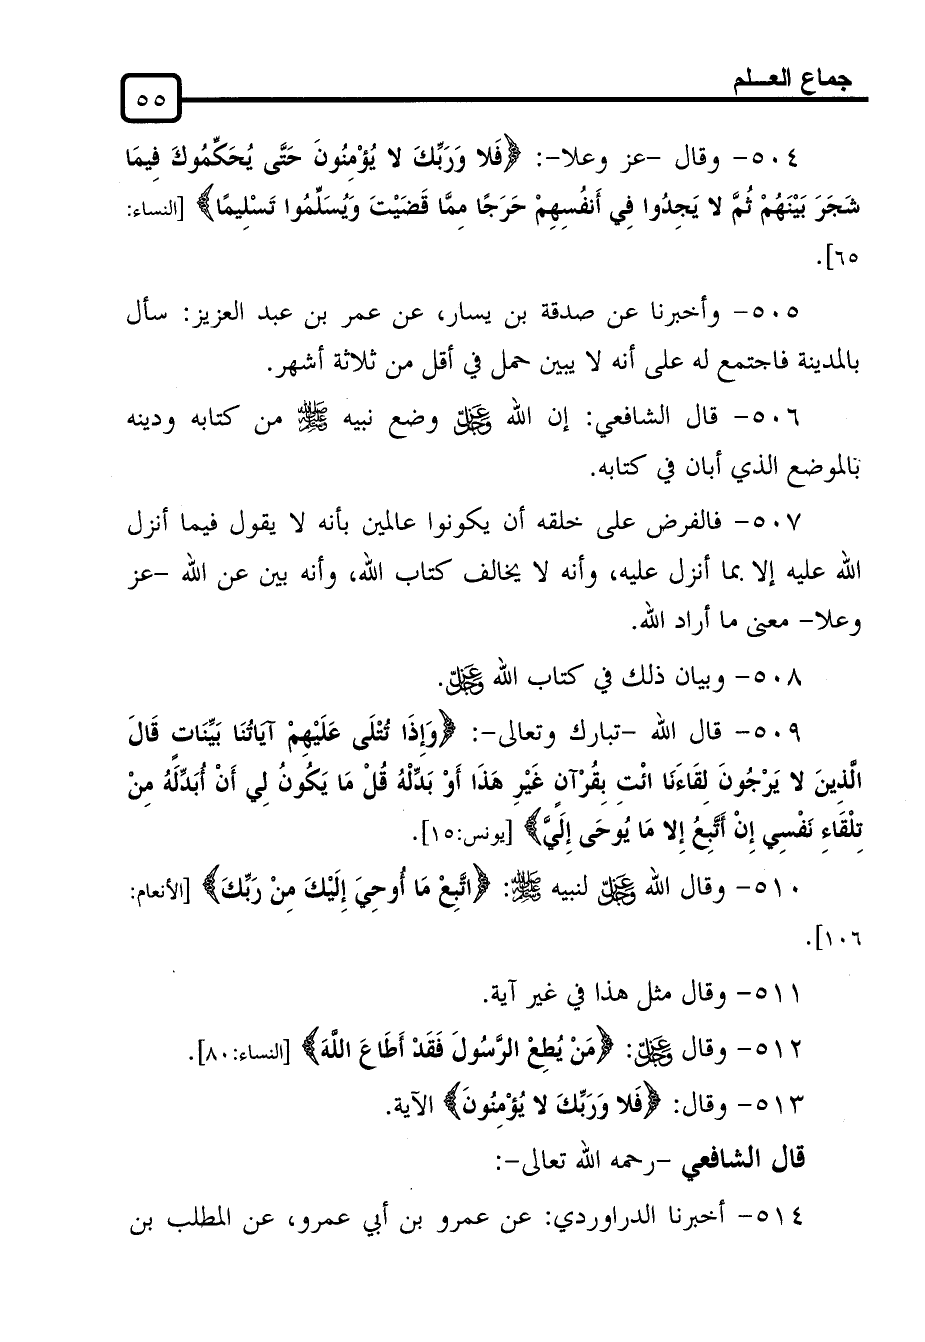 جماع العـــلم
٥٥
٥٠٤- وقال -عز وعلا-: ﴿فَلا وَرَبِّكَ لا يُؤْمِنُونَ حَتَّى يُحَكِّمُوكَ فِيمَا
شَجَرَ بَيْنَهُمْ ثُمَّ لا يَجِدُوا فِي أَنفُسِهِمْ حَرَجًا مِمَّا قَضَيْتَ وَيُسَلِّمُوا تَسْلِيمًا﴾ [النساء:
٦٥].
٥٠٥- وأخبرنا عن صدقة بن يسار، عن عمر بن عبد العزيز: سأل
بالمدينة فاجتمع له على أنه لا يبين حمل في أقل من ثلاثة أشهر.
٥٠٦- قال الشافعي: إن الله عز وجل وضع نبيه ﷺ من كتابه ودينه
بالموضع الذي أبان في كتابه.
٥٠٧- فالفرض على خلقه أن يكونوا عالمين بأنه لا يقول فيما أنزل
الله عليه إلا بما أنزل عليه، وأنه لا يخالف كتاب الله، وأنه بين عن الله -عز
وعلا- معنى ما أراد الله.
٥٠٨- وبيان ذلك في كتاب الله عز وجل.
٥٠٩- قال الله -تبارك وتعالى-: ﴿وَإِذَا تُتْلَى عَلَيْهِمْ آيَاتُنَا بَيِّنَاتٍ قَالَ
الَّذِينَ لا يَرْجُونَ لِقَاءَنَا ائْتِ بِقُرْآنٍ غَيْرِ هَذَا أَوْ بَدِّلْهُ قُلْ مَا يَكُونُ لِي أَنْ أُبَدِّلَهُ مِنْ
تِلْقَاءِ نَفْسِي إِنْ أَتَّبِعُ إِلا مَا يُوحَى إِلَيَّ﴾ [يونس:١٥].
٥١٠- وقال الله عز وجل لنبيه ﷺ: ﴿اتَّبِعْ مَا أُوحِيَ إِلَيْكَ مِنْ رَبِّكَ﴾ [الأنعام:
١٠٦].
٥١١- وقال مثل هذا في غير آية.
٥١٢- وقال عز وجل: ﴿مَنْ يُطِعْ الرَّسُولَ فَقَدْ أَطَاعَ اللَّهَ﴾ [النساء:٨٠].
٥١٣- وقال: ﴿فَلا وَرَبِّكَ لا يُؤْمِنُونَ﴾ الآية.
قال الشافعي -رحمه الله تعالى-:
٥١٤- أخبرنا الدراوردي: عن عمرو بن أبي عمرو، عن المطلب بن